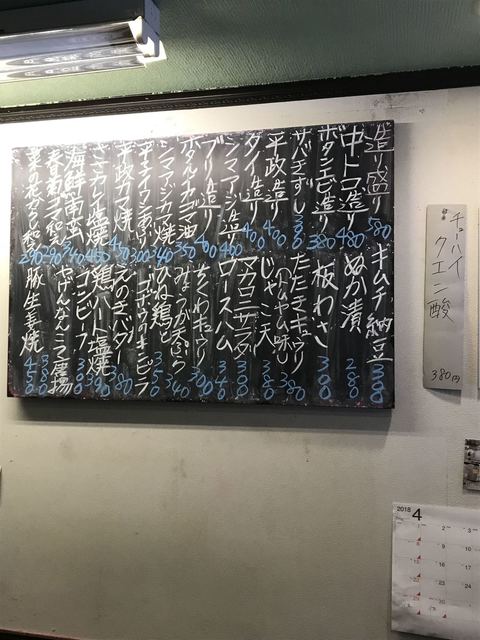 造り盛り 580
中トロ造り 480
ボタンエビ造り 380
サバきずし 380
平政造り 400
タイ造り 400
シマアジ造り 400
ブリ造り 400
ホタルイカゴマ油 350
シマアジカマ焼 340
平政カマ焼 450
ささみカツ塩焼
海鮮南蛮 340
春菊ゴマ和え 290
菜の花からし和え 290
キムチ納豆 300
ぬか漬 280
板わさ 300
たたきキュウリ
(トムヤム味) 380
じゃこ天 380
マカロニサラダ 300
ロースハム 340
ちくわキュウリ 300
ひね鶏ピ 350
えのきバター 380
鶏ハート塩焼 390
コンビーフ 380
やげんなんこつ唐揚 380
豚生姜焼 450
チューハイ
クエン酸
380円
2018
4